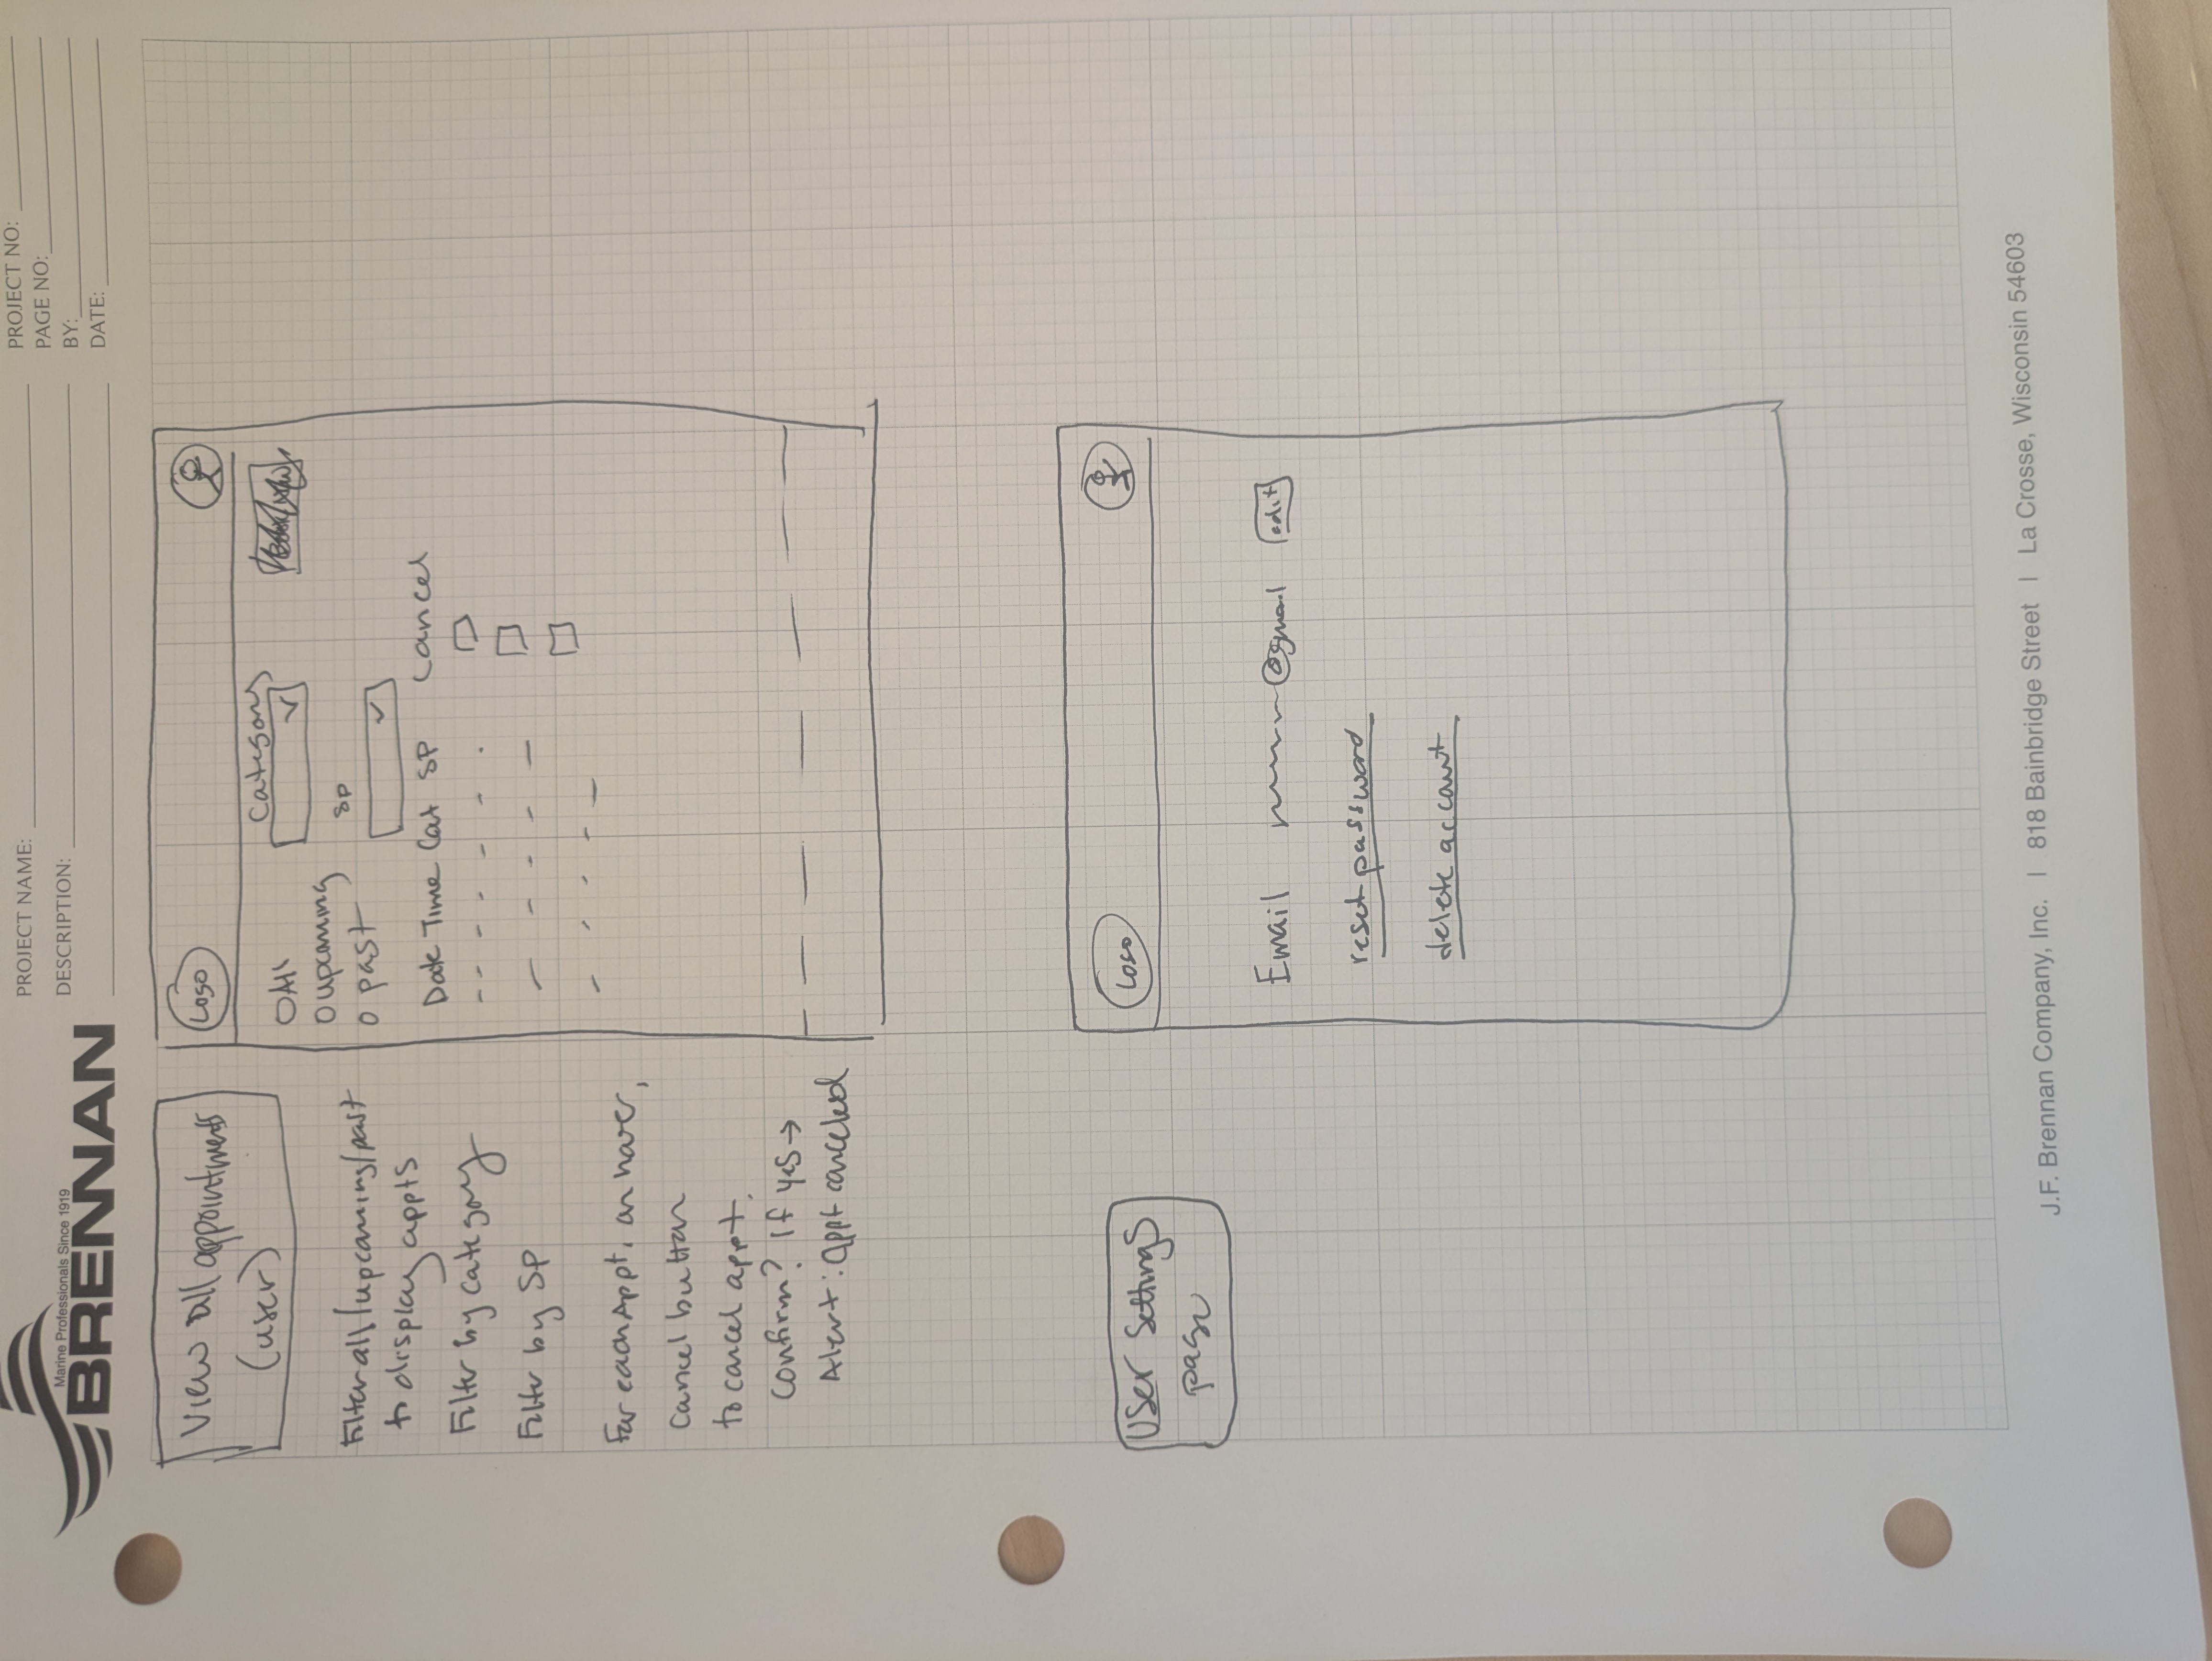 Marine Professionals Since 1919
BRENNAN
PROJECT NAME:
DESCRIPTION:
PROJECT NO:
PAGE NO:
BY:
DATE:
View all appointments
(user)
Filter all/upcoming/past
to display appts
Filter by category
Filter by SP
For each Appt, on hover,
cancel button
to cancel appt.
Confirm? If yes →
Alert: appt canceled
Logo
All
upcoming
past
Category
SP
Date Time Cat SP Cancel
User Settings
page
Logo
Email @gmail edit
reset password
delete account
J.F. Brennan Company, Inc. | 818 Bainbridge Street | La Crosse, Wisconsin 54603